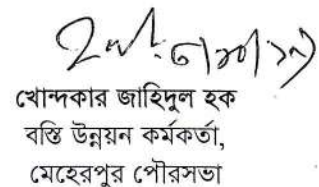 খোন্দকার জাহিদুল হক
বস্তি উন্নয়ন কর্মকর্তা,
মেহেরপুর পৌরসভা